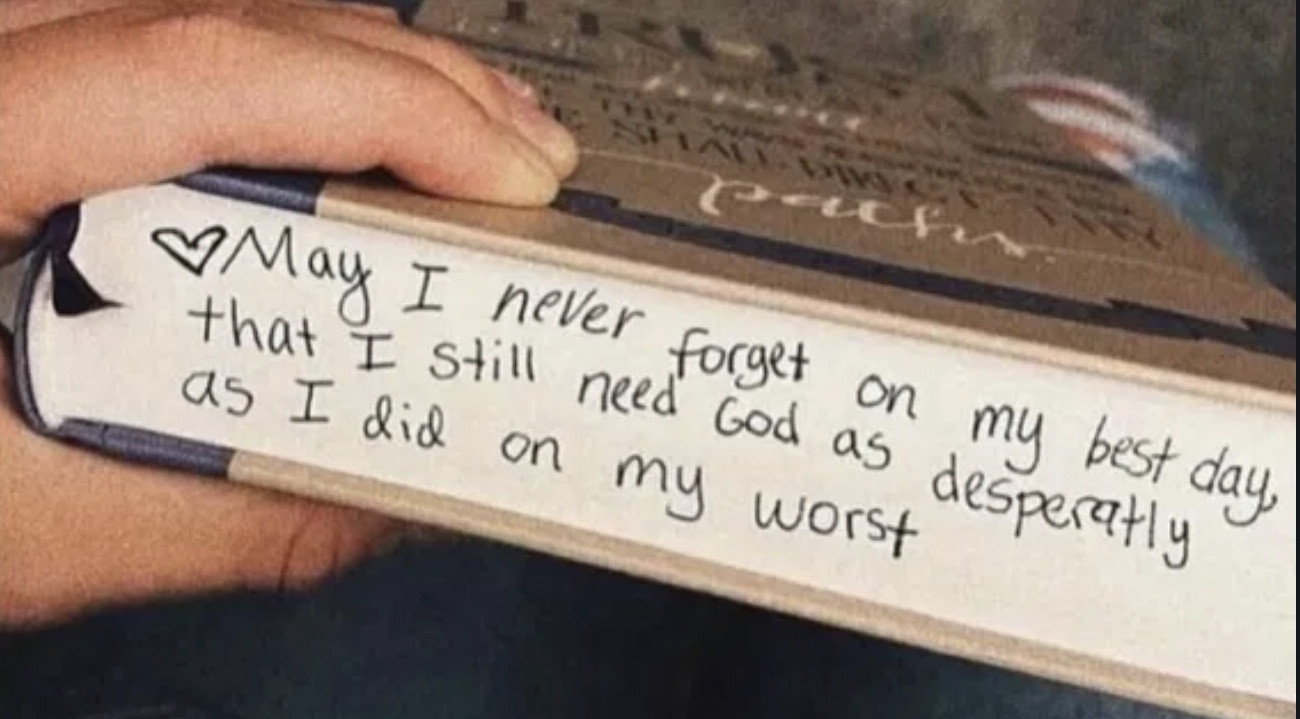 SHALL DIRECT
paths.
♡May I never forget on my best day,
that I still need God as desperatly
as I did on my worst